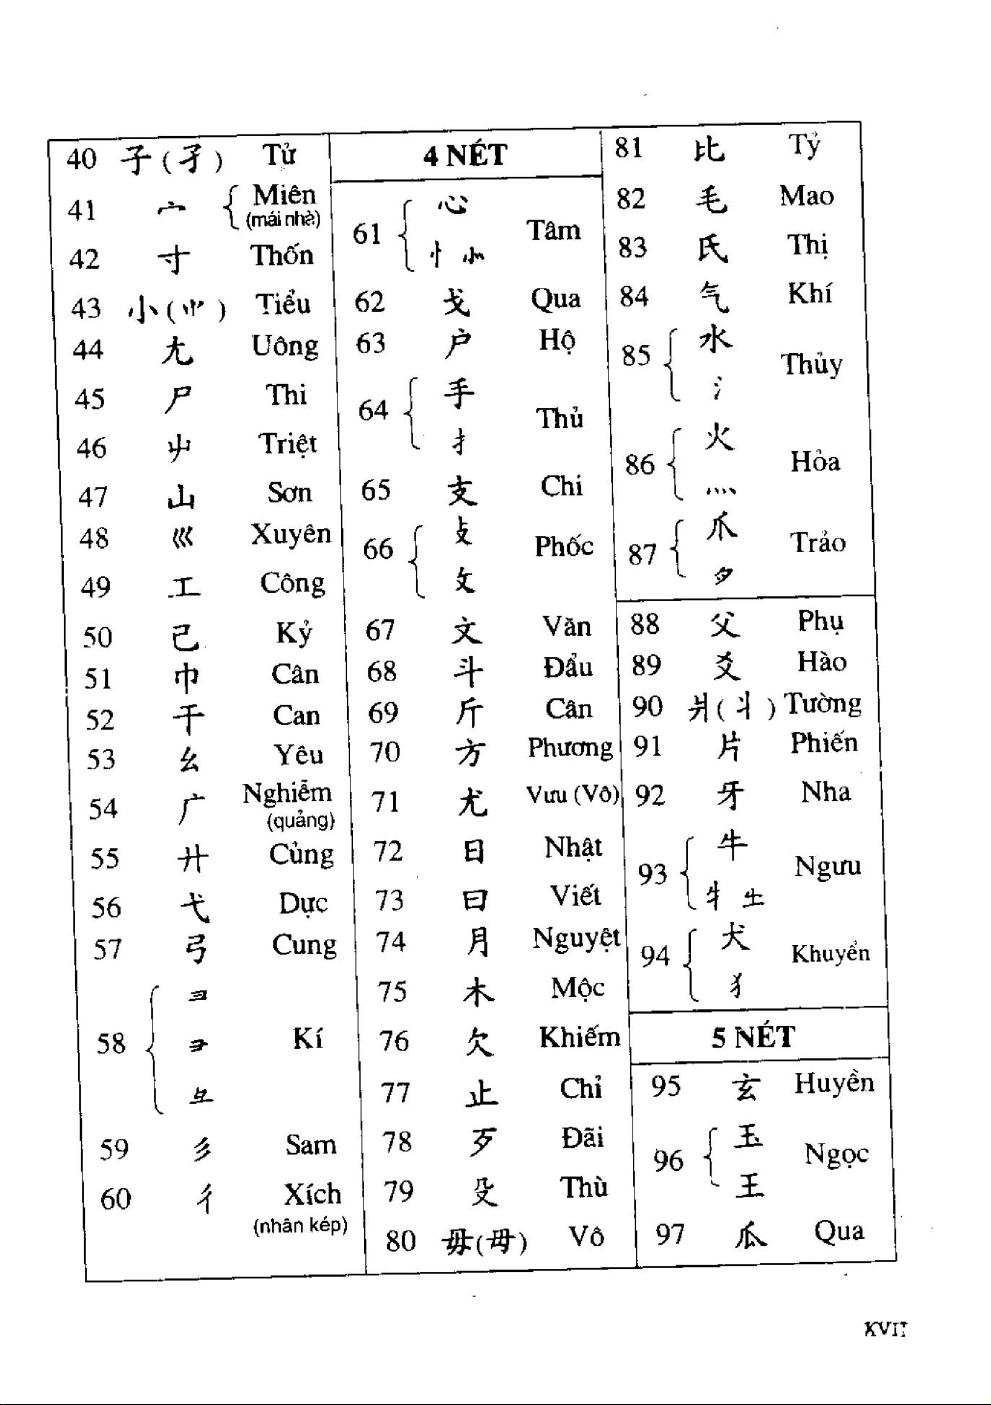 40 子 (孑) Tử
41 宀 Miên
(mái nhà)
42 寸 Thốn
43 小 (⺌) Tiểu
44 尢 Uông
45 尸 Thi
46 屮 Triệt
47 山 Sơn
48 巛 Xuyên
49 工 Công
50 己 Kỷ
51 巾 Cân
52 干 Can
53 幺 Yêu
54 广 Nghiễm
(quảng)
55 廾 Củng
56 弋 Dực
57 弓 Cung
58 彐 Kí
彑
59 彡 Sam
60 彳 Xích
(nhân kép)
4 NÉT
61 心 Tâm
忄 㣺
62 戈 Qua
63 户 Hộ
64 手 Thủ
扌
65 支 Chi
66 攴 Phốc
攵
67 文 Văn
68 斗 Đẩu
69 斤 Cân
70 方 Phương
71 尤 Vưu (Vô)
72 日 Nhật
73 曰 Viết
74 月 Nguyệt
75 木 Mộc
76 欠 Khiếm
77 止 Chỉ
78 歹 Đãi
79 殳 Thù
80 毋 (母) Vô
81 比 Tỷ
82 毛 Mao
83 氏 Thị
84 气 Khí
85 水 Thủy
氵
86 火 Hỏa
灬
87 爪 Trảo
爫
88 父 Phụ
89 爻 Hào
90 爿 (丬) Tường
91 片 Phiến
92 牙 Nha
93 牛 Ngưu
牜
94 犬 Khuyển
犭
5 NÉT
95 玄 Huyền
96 玉 Ngọc
王
97 瓜 Qua
XVII